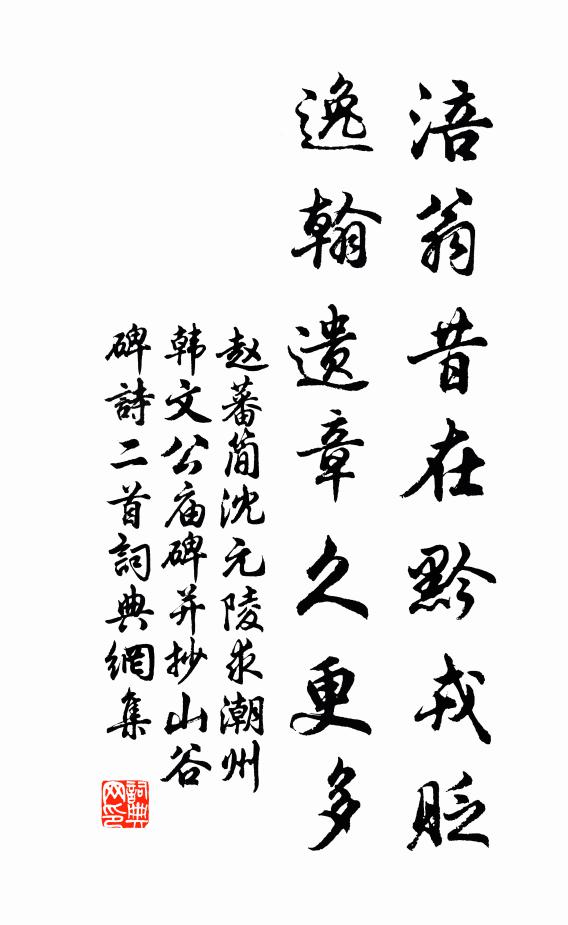 涪翁昔在黔戎貶
逸翰遺章久更多
赵蕃簡沈元陵求潮州
韩文公庙碑并抄山谷
碑詩二首詞典網集
詞典网印